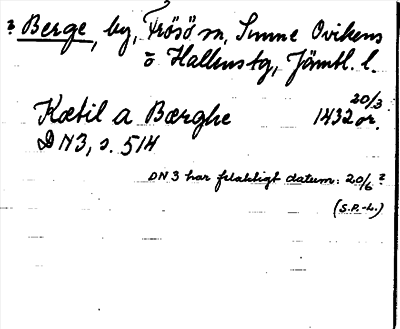 ? Berge, by, Frösö m, Sunne Ovikens
o Hallens tg, Jämtl. l.
Kætil a Bærghe 1432 20/3 or.
DN3, s. 514
DN 3 har felaktigt datum: 20/6 ?
(S.P.-L.)